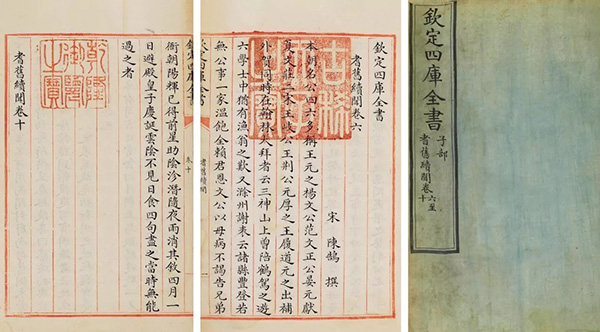 欽定四庫全書
子部
耆舊續聞卷六至十
欽定四庫全書
耆舊續聞卷六
宋 陳鵠 撰
本朝名公四六多稱王元之楊文公范文正公晏元獻
夏文莊二宋王岐公王荆公元厚之王履道元之出補
外賀同時在翰林大拜者云三神山上曾陪鶴駕之遊
六學士中猶有漁翁之歎又滁州謝表云諸縣豐登若
無公事一家溫飽全賴君恩文公以母病不謁告兄弟
古稀天子
欽定四庫全書
耆舊續聞
卷十
衝朝陽輝已得前星助陰沴潛隨夜雨消其敘四月一
日避殿皇子慶誕雲陰不見日食四句盡之當時無能
過之者
乾隆御覽之寶
耆舊續聞卷十